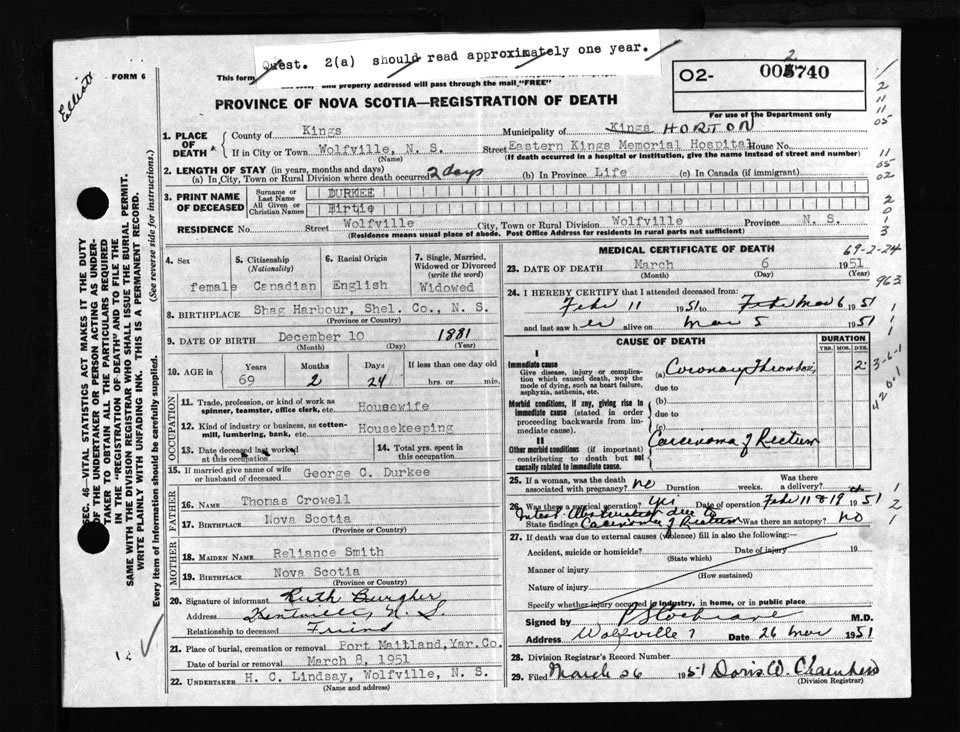 Quest. 2(a) should read approximately one year.
Elliott
FORM 6
This form
and properly addressed will pass through the mail "FREE"
O2- 005740
2
For use of the Department only
PROVINCE OF NOVA SCOTIA—REGISTRATION OF DEATH
1. PLACE OF DEATH* { County of Kings Municipality of Kings HORTON
If in City or Town Wolfville, N. S. Street Eastern Kings Memorial Hospital House No.
(Name) (If death occurred in a hospital or institution, give the name instead of street and number)
2. LENGTH OF STAY (in years, months and days)
(a) In City, Town or Rural Division where death occurred 2 days (b) In Province Life (c) In Canada (if immigrant)
3. PRINT NAME OF DECEASED { Surname or Last Name DURKEE
All Given or Christian Names Birtie
RESIDENCE No. Street Wolfville City, Town or Rural Division Wolfville Province N. S.
(Residence means usual place of abode. Post Office Address for residents in rural parts not sufficient)
4. Sex female
5. Citizenship (Nationality) Canadian
6. Racial Origin English
7. Single, Married, Widowed or Divorced (write the word) Widowed
8. BIRTHPLACE Shag Harbour, Shel. Co., N. S.
(Province or Country)
9. DATE OF BIRTH December 10 1881
(Month) (Day) (Year)
10. AGE in { Years 69 Months 2 Days 24 If less than one day old hrs. or min.
OCCUPATION
11. Trade, profession, or kind of work as spinner, teamster, office clerk, etc. Housewife
12. Kind of industry or business, as cotton-mill, lumbering, bank, etc. Housekeeping
13. Date deceased last worked at this occupation
14. Total yrs. spent in this occupation
15. If married give name of wife or husband of deceased George C. Durkee
FATHER
16. NAME Thomas Crowell
17. BIRTHPLACE Nova Scotia
(Province or Country)
MOTHER
18. MAIDEN NAME Reliance Smith
19. BIRTHPLACE Nova Scotia
(Province or Country)
20. Signature of informant Ruth Burgher
Address Kentville, N. S.
Relationship to deceased Friend
21. Place of burial, cremation or removal Port Maitland, Yar. Co.
Date of burial or removal March 8, 1951
22. UNDERTAKER H. C. Lindsay, Wolfville, N. S.
(Name and address)
MEDICAL CERTIFICATE OF DEATH
69-2-24
23. DATE OF DEATH March 6 1951
(Month) (Day) (Year)
963
24. I HEREBY CERTIFY that I attended deceased from:
Feb 11 1951 to Mar 6 1951
and last saw her alive on Mar 5 1951
CAUSE OF DEATH
DURATION
YRS. MOS. DYS.
I
Immediate cause
Give disease, injury or complication which caused death, NOT the mode of dying, such as heart failure, asphyxia, asthenia, etc.
(a) Coronary Thrombosis 2
due to
Morbid conditions, if any, giving rise to immediate cause (stated in order proceeding backwards from immediate cause).
(b)
due to
(c)
II
Other morbid conditions (if important) contributing to death but not causally related to immediate cause.
Carcinoma of Rectum
25. If a woman, was the death associated with pregnancy? no Duration weeks. Was there a delivery?
26. Was there a surgical operation? yes Date of operation Feb 11 & 19th 1951
Intest. Obstruction due to
State findings Carcinoma of Rectum Was there an autopsy? no
27. If death was due to external causes (violence) fill in also the following:—
Accident, suicide or homicide? Date of injury 19
(State which)
Manner of injury
(How sustained)
Nature of injury
Specify whether injury occurred in industry, in home, or in public place
Signed by M.D.
Address Wolfville Date 26 Mar 1951
28. Division Registrar's Record Number
29. Filed March 26 1951 Doris W. Chambers
(Division Registrar)
SEC. 46—VITAL STATISTICS ACT MAKES IT THE DUTY
OF THE UNDERTAKER OR PERSON ACTING AS UNDERTAKER TO OBTAIN ALL THE PARTICULARS REQUIRED
IN THE "REGISTRATION OF DEATH" AND TO FILE THE
SAME WITH THE DIVISION REGISTRAR WHO SHALL ISSUE THE BURIAL PERMIT.
WRITE PLAINLY WITH UNFADING INK. THIS IS A PERMANENT RECORD.
Every item of information should be carefully supplied. (See reverse side for instructions.)
12